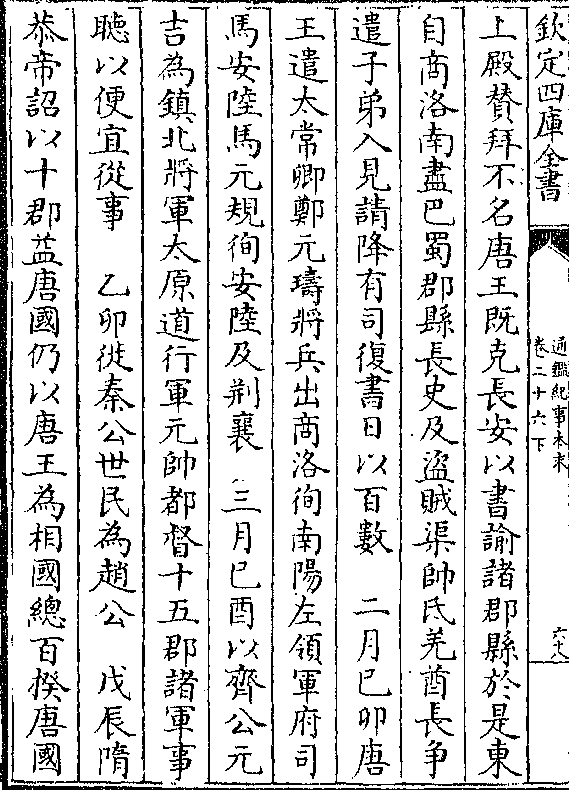 欽定四庫全書
通鑑紀事本末
卷二十六下
六十八
上殿贊拜不名唐王既克長安以書諭諸郡縣於是東
自商洛南盡巴蜀郡縣長史及盜賊渠帥氐羌酋長爭
遣子弟入見請降有司復書日以百數　二月己卯唐
王遣太常卿鄭元璹將兵出商洛徇南陽左領軍府司
馬安陸馬元規徇安陸及荆襄　三月己酉以齊公元
吉為鎮北將軍太原道行軍元帥都督十五郡諸軍事
聽以便宜從事　乙卯徙秦公世民為趙公　戊辰隋
恭帝詔以十郡益唐國仍以唐王為相國總百揆唐國